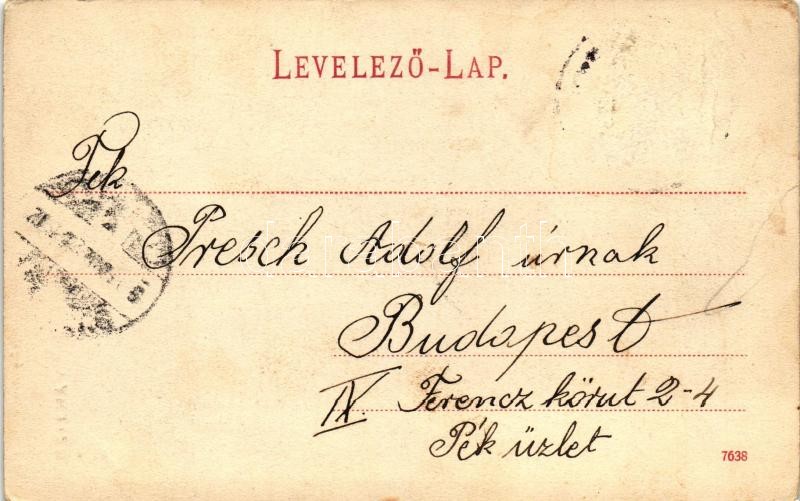 LEVELEZŐ-LAP.
Tek
Presch Adolf úrnak
Budapest
IX. Ferencz körut 2-4
Pék üzlet
7638